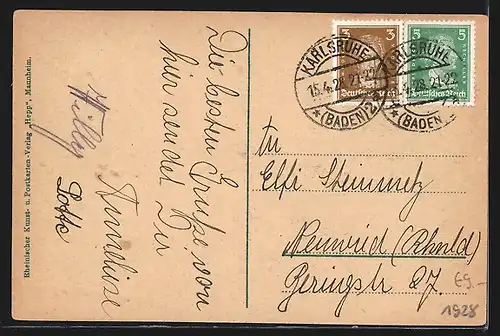 Die besten Grüße von
hier sendet Dir
Anneliese
Willy
Lotte
Rheinischer Kunst- u. Postkarten-Verlag "Hepp", Mannheim.
3 3
Deutsches Reich
5 5
Deutsches Reich
KARLSRUHE
15.4.28. 21-22
* (BADEN) 2
KARLSRUHE
28. 21-22
* (BADEN
Elfi Steinmetz
Neuwied (Rhnld)
Beringstr 27.
1928